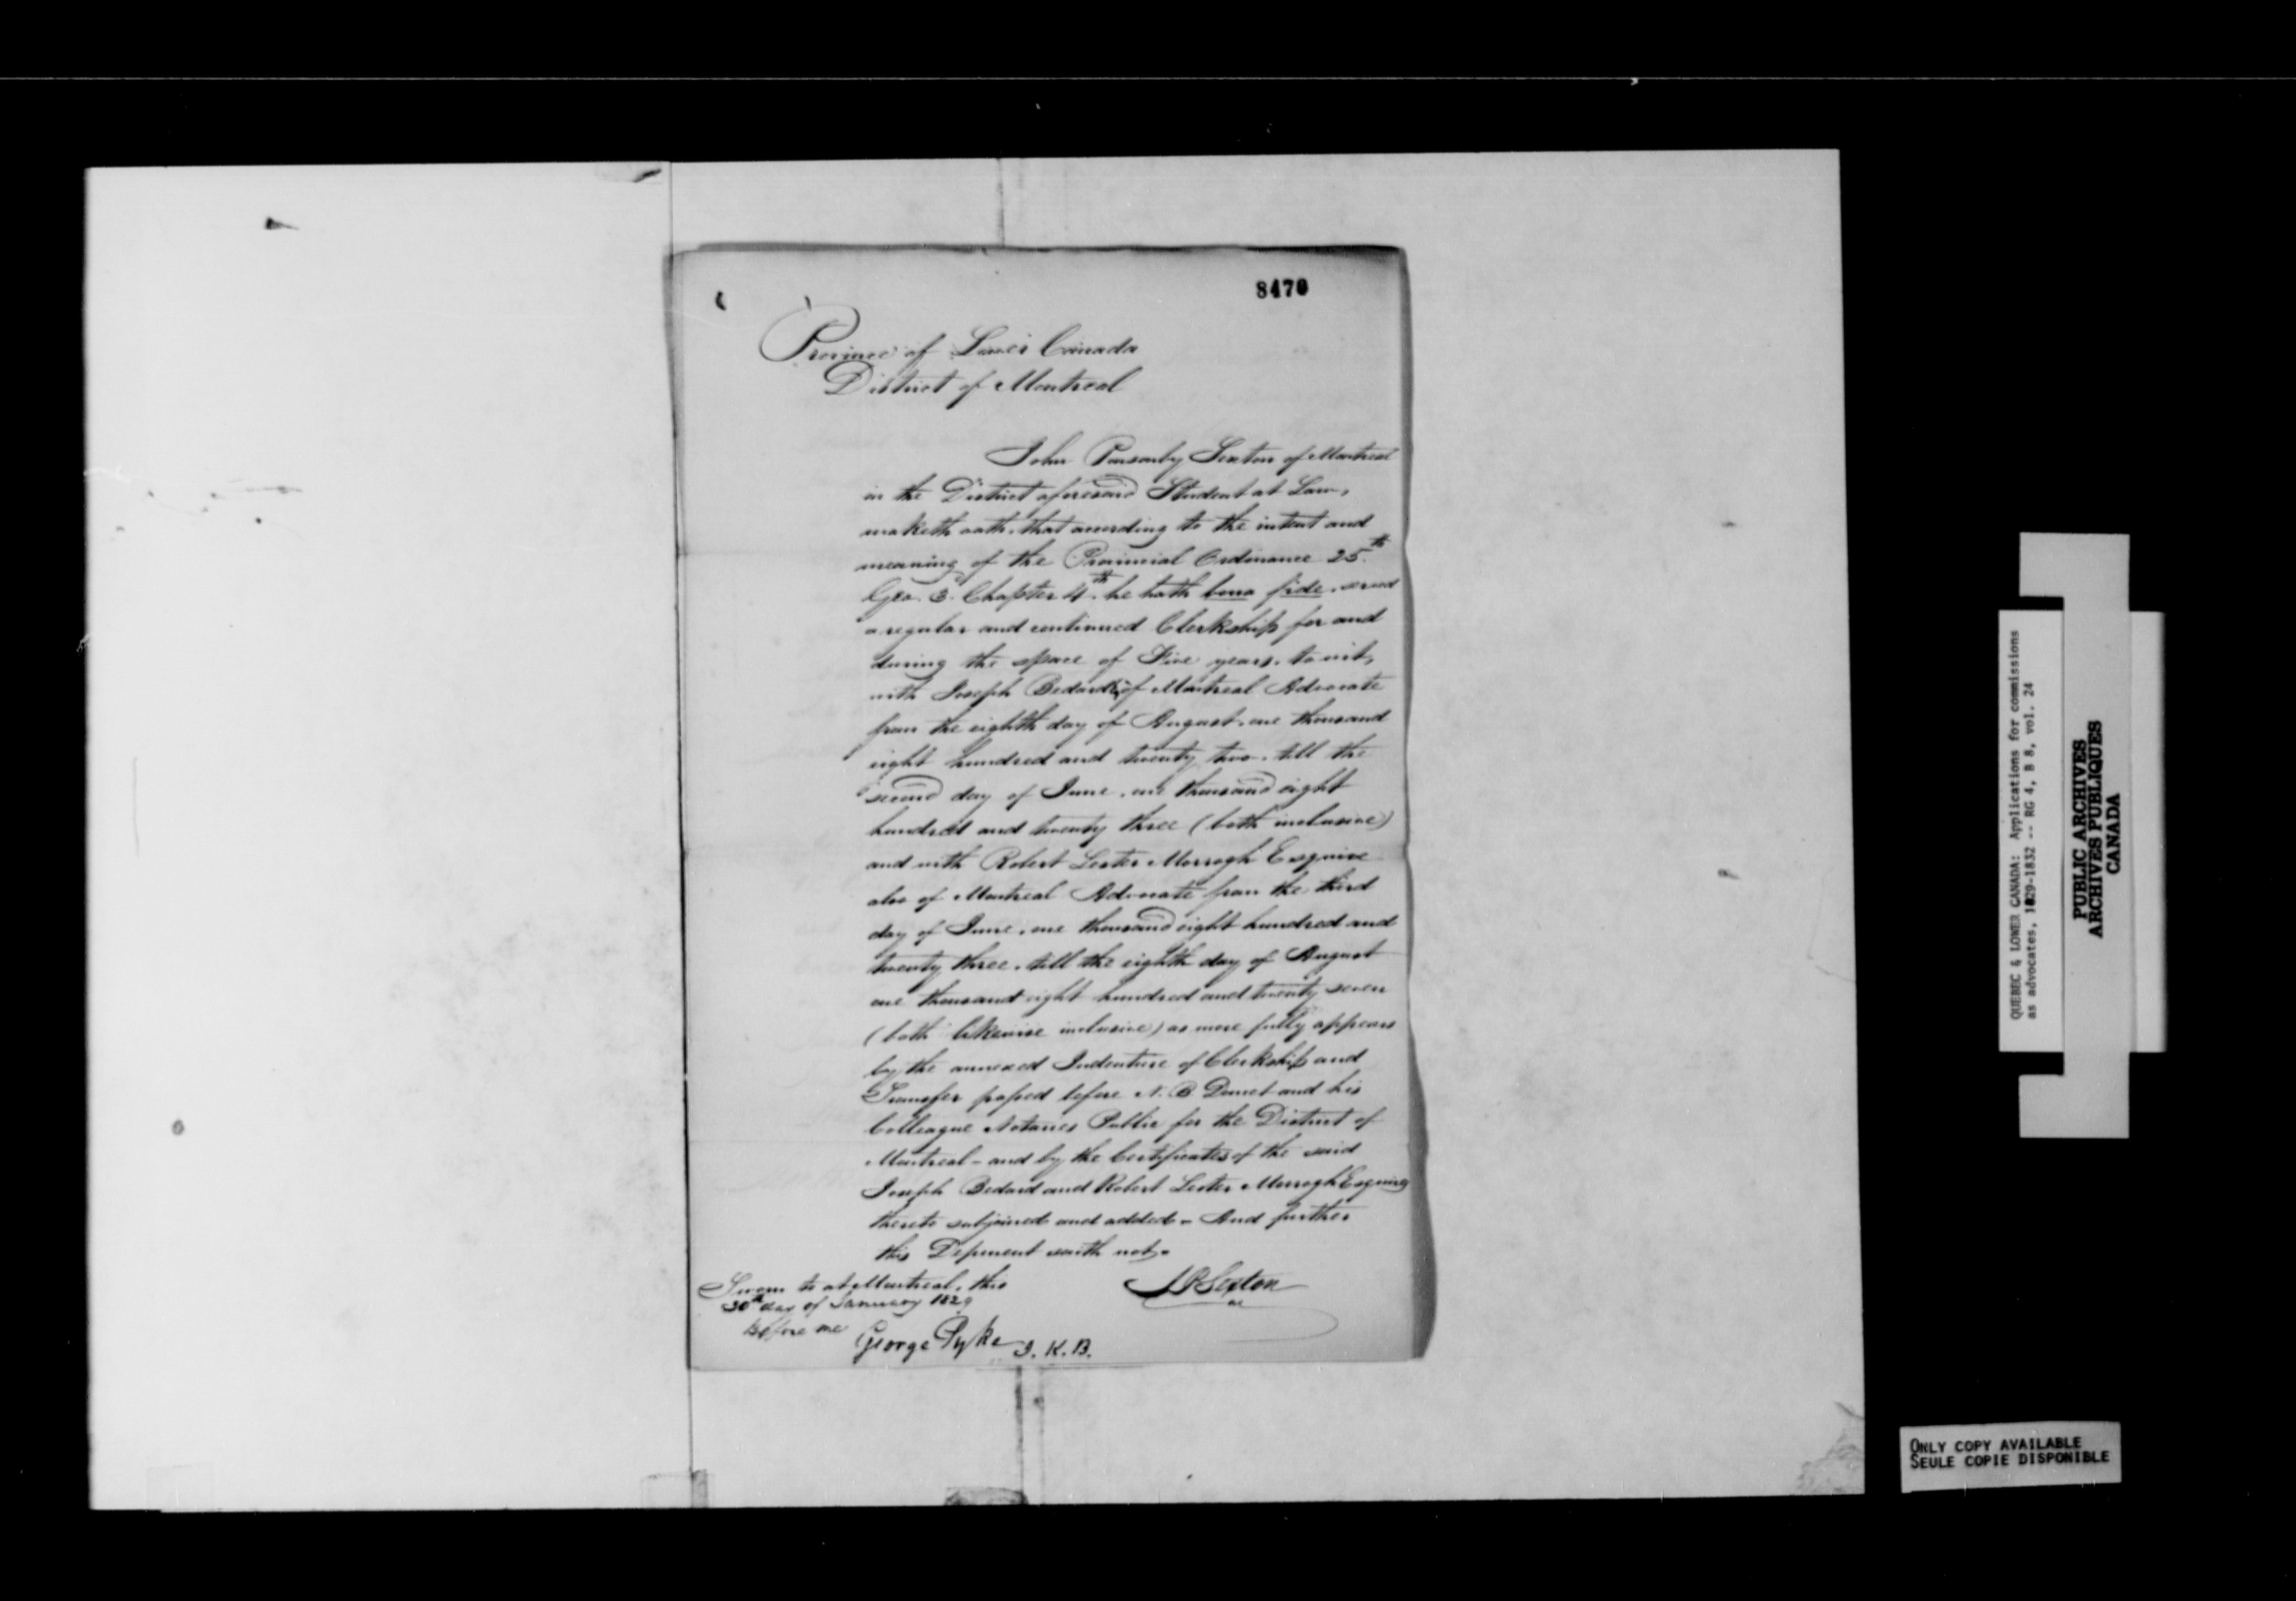 8470
Province of Lower Canada
District of Montreal
John Ponsonby Sexton of Montreal
in the District aforesaid Student at Law,
maketh oath, that according to the intent and
meaning of the Provincial Ordinance 25th
Geo. 3. Chapter 4th he hath bona fide, served
a regular and continued Clerkship for and
during the space of Five years, to wit,
with Joseph Bedard of Montreal Advocate
from the eighth day of August, one thousand
eight hundred and twenty two, till the
second day of June, one thousand eight
hundred and twenty three (both inclusive)
and with Robert Lester Morrogh Esquire
also of Montreal Advocate from the third
day of June, one thousand eight hundred and
twenty three, till the eighth day of August
one thousand eight hundred and twenty seven
(both likewise inclusive) as more fully appears
by the annexed Indenture of Clerkship and
Transfer passed before N. B. Doucet and his
Colleague Notaries Public for the District of
Montreal - and by the Certificates of the said
Joseph Bedard and Robert Lester Morrogh Esquires
thereto subjoined and added - And further
this Deponent saith not.
Sworn to at Montreal, this
30th day of January 1829
Before me
J P Sexton
George Pyke J. K. B.
QUEBEC & LOWER CANADA: Applications for commissions
as advocates, 1829-1832 -- RG 4, B 8, vol. 24
PUBLIC ARCHIVES
ARCHIVES PUBLIQUES
CANADA
ONLY COPY AVAILABLE
SEULE COPIE DISPONIBLE